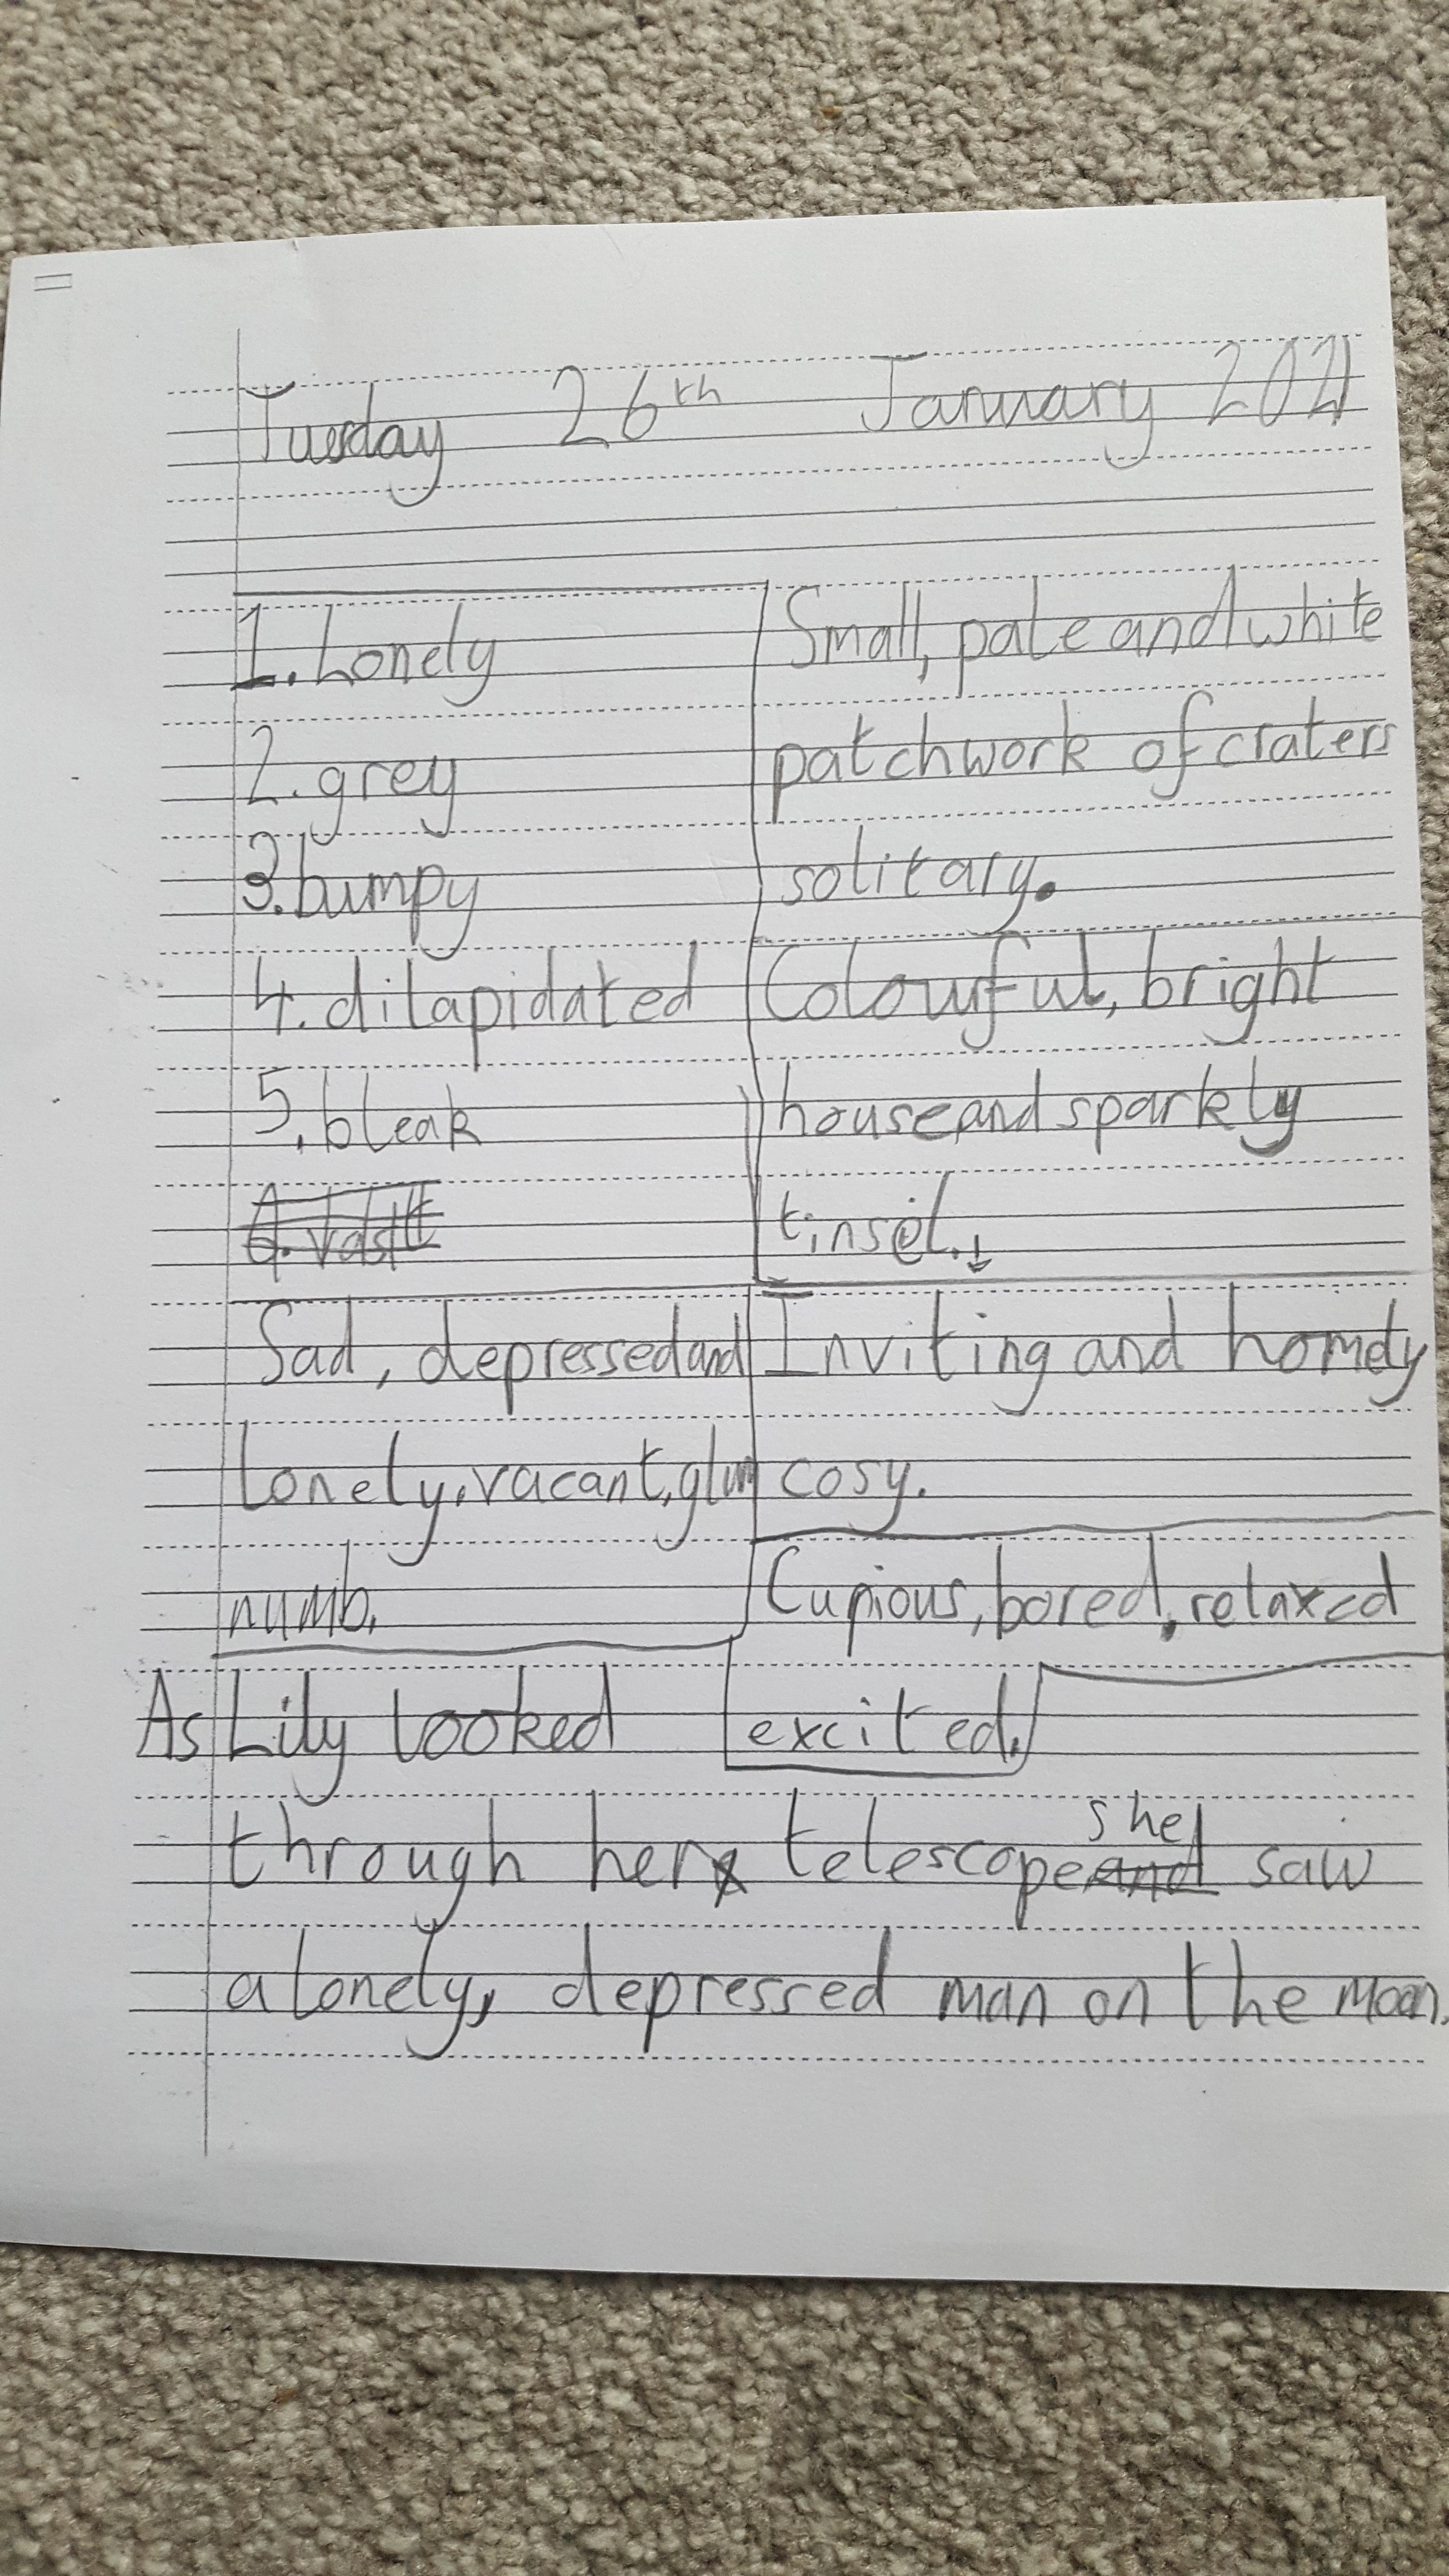 Tuesday 26th January 2021
1. Lonely
2. grey
3. bumpy
4. dilapidated
5. bleak
6. vast
Small, pale and white
patchwork of craters
solitary.
Colourful, bright
house and sparkly
tinsel.↓
Sad, depressed and
lonely, vacant, glum
numb.
Inviting and homely
cosy.
Curious, bored, relaxed
excited.
As Lily looked
through her telescope she saw
a lonely, depressed man on the moon.